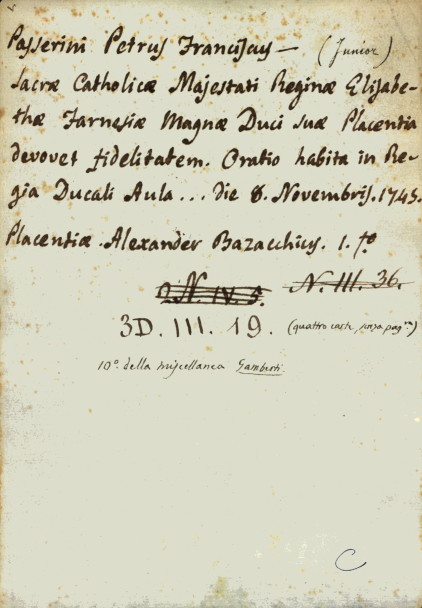 Passerini Petrus Franciscus — (Junior)
Sacræ Catholicæ Majestati Reginæ Elisabe-
thæ Farnesiæ Magnæ Duci suæ Placentia
devovet fidelitatem. Oratio habita in Re-
gia Ducali Aula ... die 8. Novembris. 1745.
Placentiæ. Alexander Bazacchius. 1. fo
N. IV. 5. N. III. 36.
3D. III. 19. (quattro carte, senza pag.ne)
10°. della miscellanea Gamberti.
C